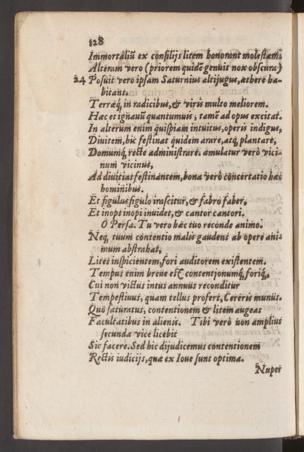 128
Immortaliũ ex consilijs litem honorant molestam.
Alteram vero (priorem quidẽ genuit nox obscura)
24 Posuit vero ipsam Saturnius altijugus, æthere ha-
bitans.
Terræq́, in radicibus, & viris multo meliorem.
Hac et ignauũ quantumuis, tamẽ ad opus excitat.
In alterum enim quispiam intuitus, operis indigus,
Diuitem, hic festinat quidem arare, atq, plantare,
Domumq́, recte administrare. æmulatur verò vici-
num vicinus,
Ad diuitias festinantem, bona verò concertatio hæc
hominibus.
Et figulus figulo irascitur, & fabro faber,
Et inops inopi inuidet, & cantor cantori.
O Persa. Tu vero hæc tuo reconde animo.
Neq, tuum contentio malis gaudens ab opere ani-
mum abstrahat,
Lites inspicientem, fori auditorem existentem.
Tempus enim breue est contentionumq́, foriq́,
Cui non victus intus annuus reconditur
Tempestiuus, quam tellus profert, Cereris munus.
Quò saturatus, contentionem & litem augeas
Facultatibus in alienis. Tibi verò non amplius
secunda vice licebit
Sic facere. Sed hic dijudicemus contentionem
Rectis iudicijs, quæ ex Ioue sunt optima.
Nuper